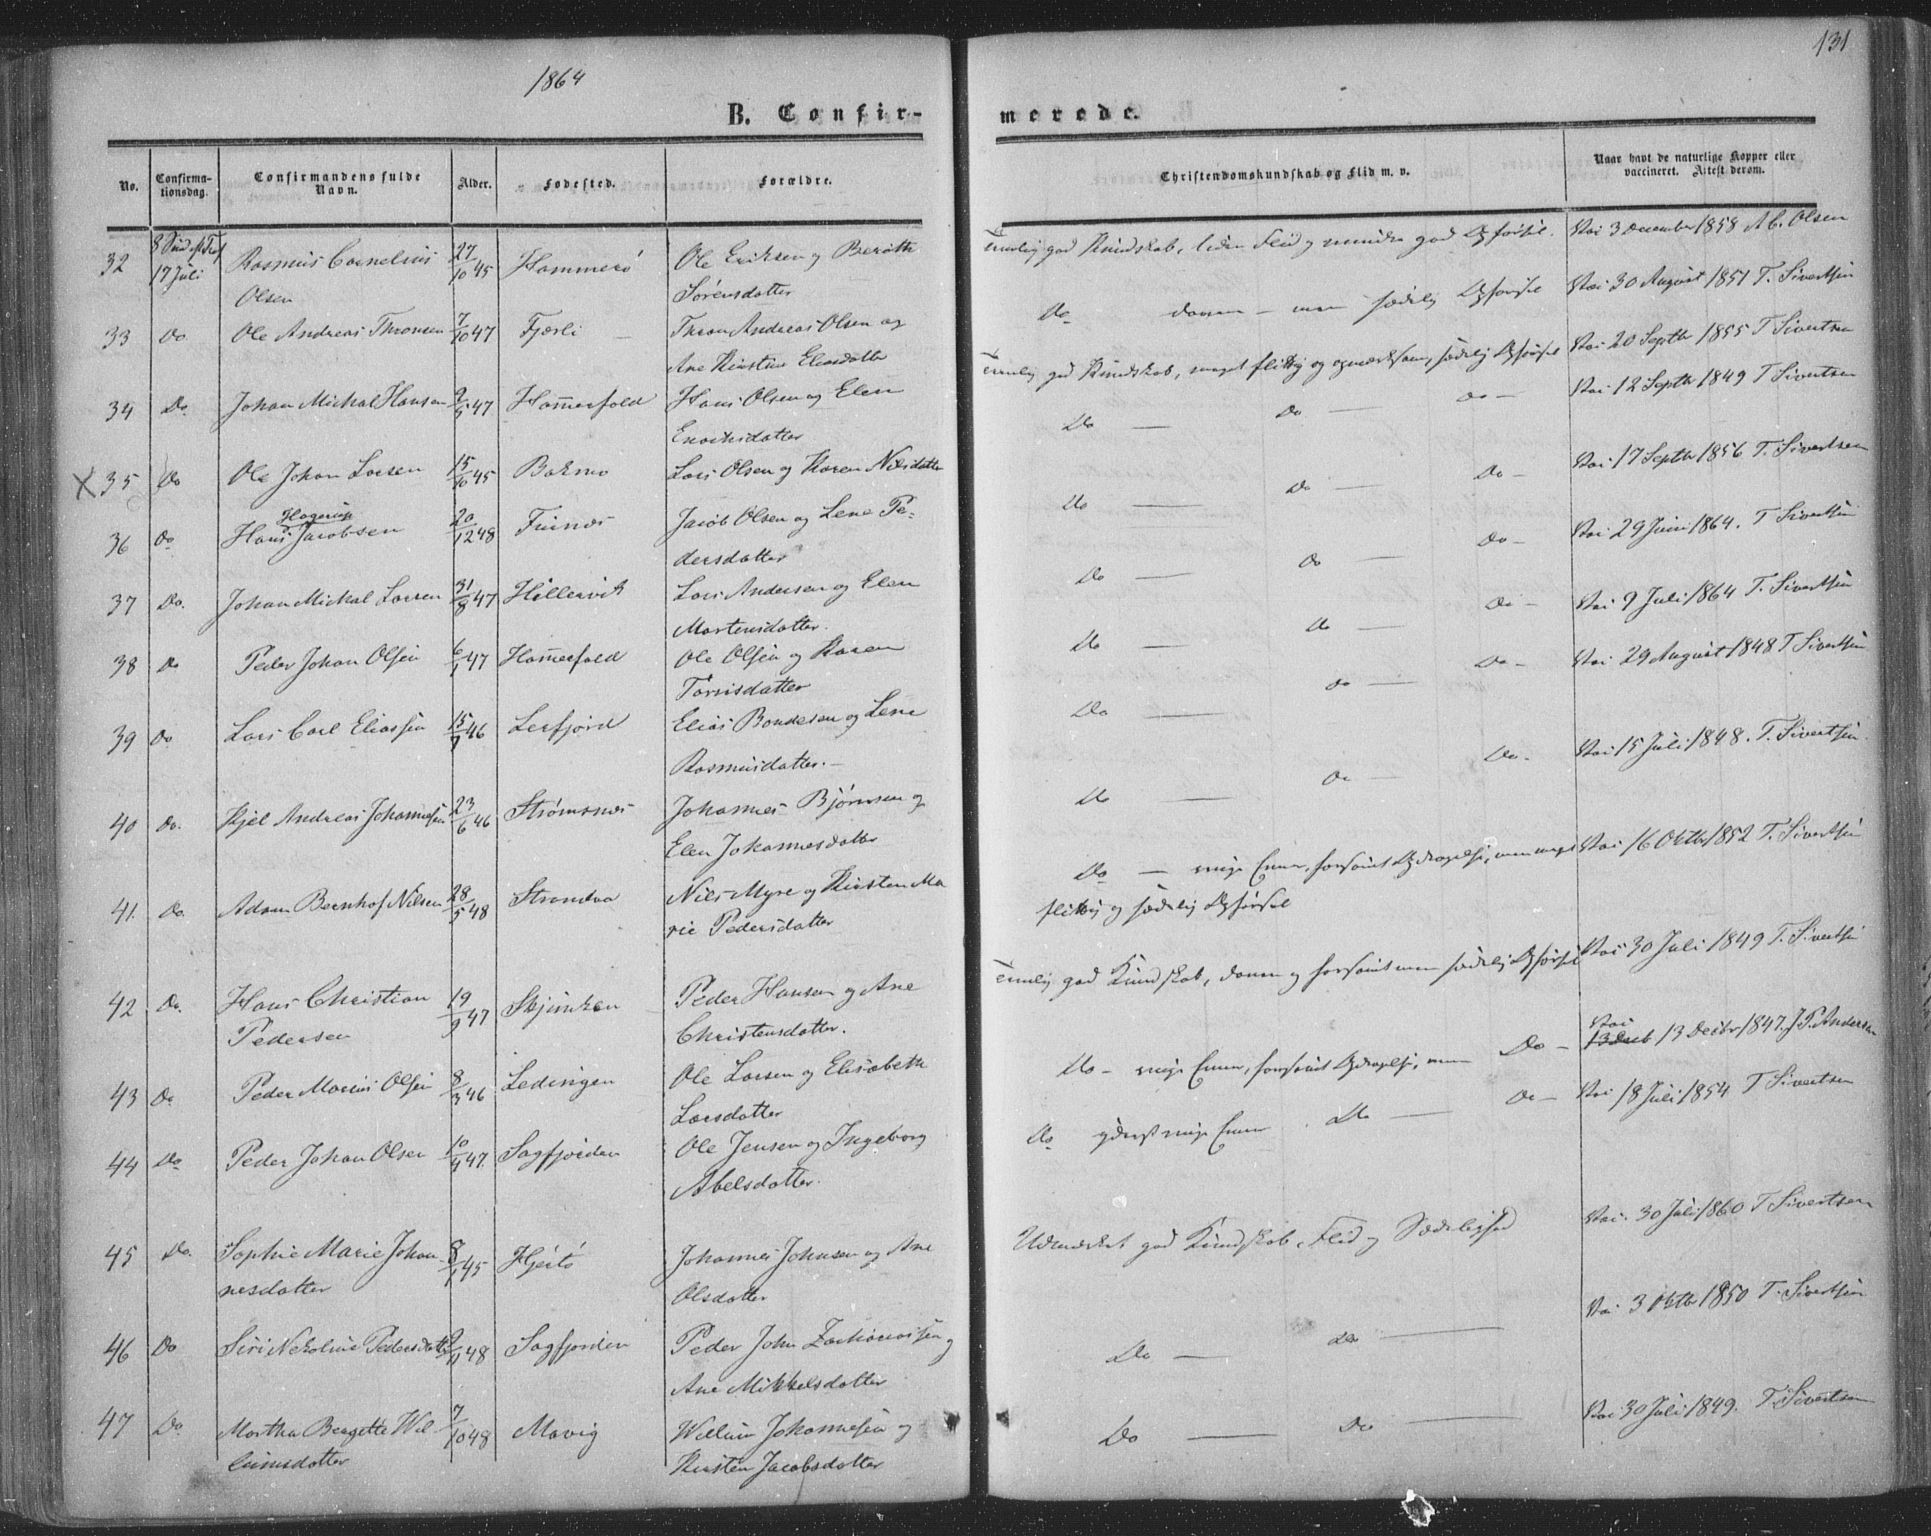 1864
131
B. Confir-
merede.
No.
Confirma-
tionsdag.
Confirmandens fulde
Navn.
Alder.
Fødested.
Forældre.
Christendomskundskab og Flid m. v.
Naar havt de naturlige Kopper eller
vaccineret. Attest derom.
32 17 Juli Rasmus Cornelius 27/10 45 Hammerø Ole Eriksen og Berith
Olsen Sørensdatter
Temlig god Kundskab, liden Flid og mindre god Opførsel. Vac. 3 December 1858 A C. Olsen
33 Do Ole Andreas Thronsen 7/10 47 Fjærli Thron Andreas Olsen og
Ane Kirstine Eliasdatter
Do men sædelig Opførsel Vac. 30 August 1851 T. Sivertsen
34 Do. Johan Mickal Hansen 2/5 47 Hamerfald Hans Olsen og Elen
Enochsdatter
Temlig god Kundskab, meget flittig og opmærksom, sædelig Opførsel Vac. 20 Septb 1855 T Sivertsen
35 Do Ole Johan Larsen 15/10 45 Bakmo Lars Olsen og Karen Nilsdatter
Do — Do — Do — Vac. 12 Septb 1849 T Sivertsen
36 Do Hans Hagerup Jacobsen 20/12 48 Furnæs Jacob Olsen og Lene Pe-
dersdatter
Do — Do — Do — Vac. 17 Septb 1856 T. Sivertsen
37 Do. Johan Mickal Larsen 31/8 47 Hillervik Lars Andersen og Elen
Mortensdatter.
Do — Do — Do — Vac. 29 Juni 1864. T Sivertsen
38 Do Peder Johan Olsen 6/1 47 Hamerfald Ole Olsen og Karen
Tørrisdatter
Do — Do — Do — Vac. 9 Juli 1864 T. Sivertsen
39 Do Lars Carl Eliassen 15/7 46 Lerfjord Elias Bondesen og Lene
Rasmusdatter.—
Do — Do — Do — Vac. 29 August 1848 T Sivertsen
40 Do. Kjel Andreas Johannesen 23/6 46 Strømsnæs Johannes Bjørnsen og
Elen Johannesdatter
Do — Do — Do. Vac. 15 Juli 1848. T. Sivertsen
41. Do. Adam Bernhof Nilsen 28/5 48 Strandva Nils Myre og Kirsten Ma
rie Pedersdatter
Do — ringe Evner, forsømt Opdragelse, men meget
flittig og sædelig Opførsel
Vac. 16 Oktb 1852 T. Sivertsen
42 Do. Hans Christian 19/9 47 Skjunken Peder Hansen og Ane
Pedersen Christensdatter.
Temlig god Kundskab, doven og forsømt men sædelig Opførsel Vac. 30 Juli 1849 T. Sivertsen
43 Do Peder Marius Olsen 8/3 46 Lødingen Ole Larsen og Elisabeth
Larsdatter
Do — ringe Evner, forsømt Opdragelse, men Do — Vac. 13 Decbr 1847. J. P. Andersen
44 Do Peder Johan Olsen 10/4 47. Sagfjorden Ole Jensen og Ingeborg
Abelsdatter.
Do yderst ringe Evner. Do — Do — Vac. 18 Juli 1854 T Sivertsen
45 Do. Sophie Marie Johan 8/1 45 Johannes Johnsen og Ane
nesdatter Olsdatter
Udmærket god Kundskab, Flid og Sædelighed Vac. 30 Juli 1860 T Sivertsen
46 Do Siri Nekoline Pedersdatter 2/11 48 Sagfjorden Peder John Zachariassen og
Ane Mikkelsdatter
Do — Do — Vac. 3 Oktb 1850 T. Sivertsen
47 Do. Martha Bergette Wil 7/10 48 Mavig Willum Johannesen og
lumsdatter Kirsten Jacobsdatter
Do — Do — Vac. 30 Juli 1849. T. Sivertsen